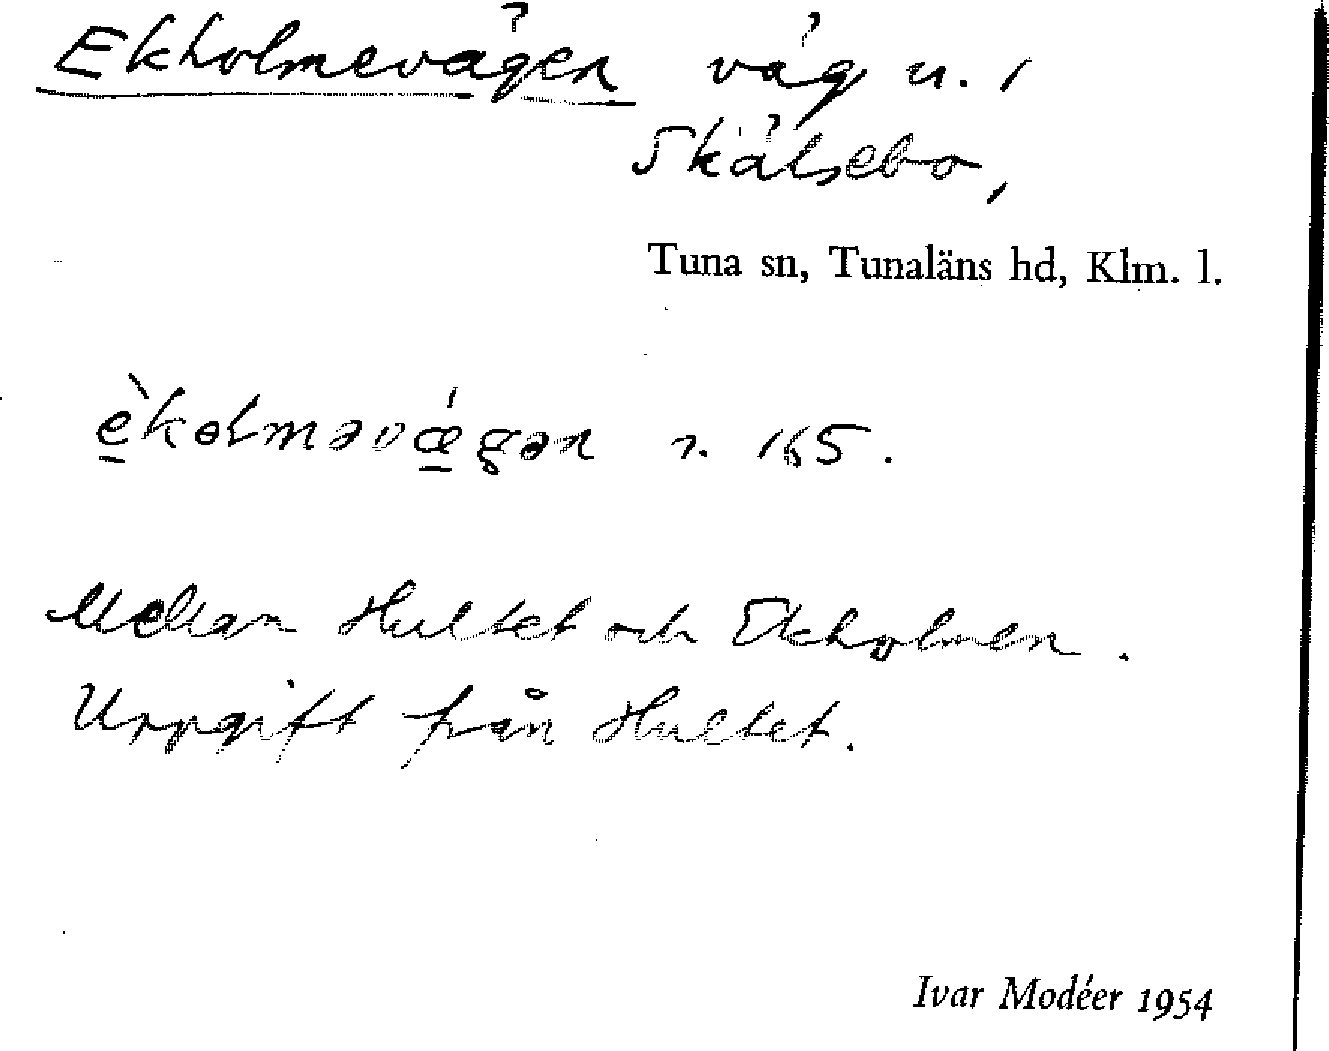 Ekholmevägen väg u. 1
Skälsebo,
Tuna sn, Tunaläns hd, Klm. l.
è̱kolməvǽ̱gən r. 165.
Mellan Hultet och Ekholmen.
Uppgift från Hultet.
Ivar Modéer 1954